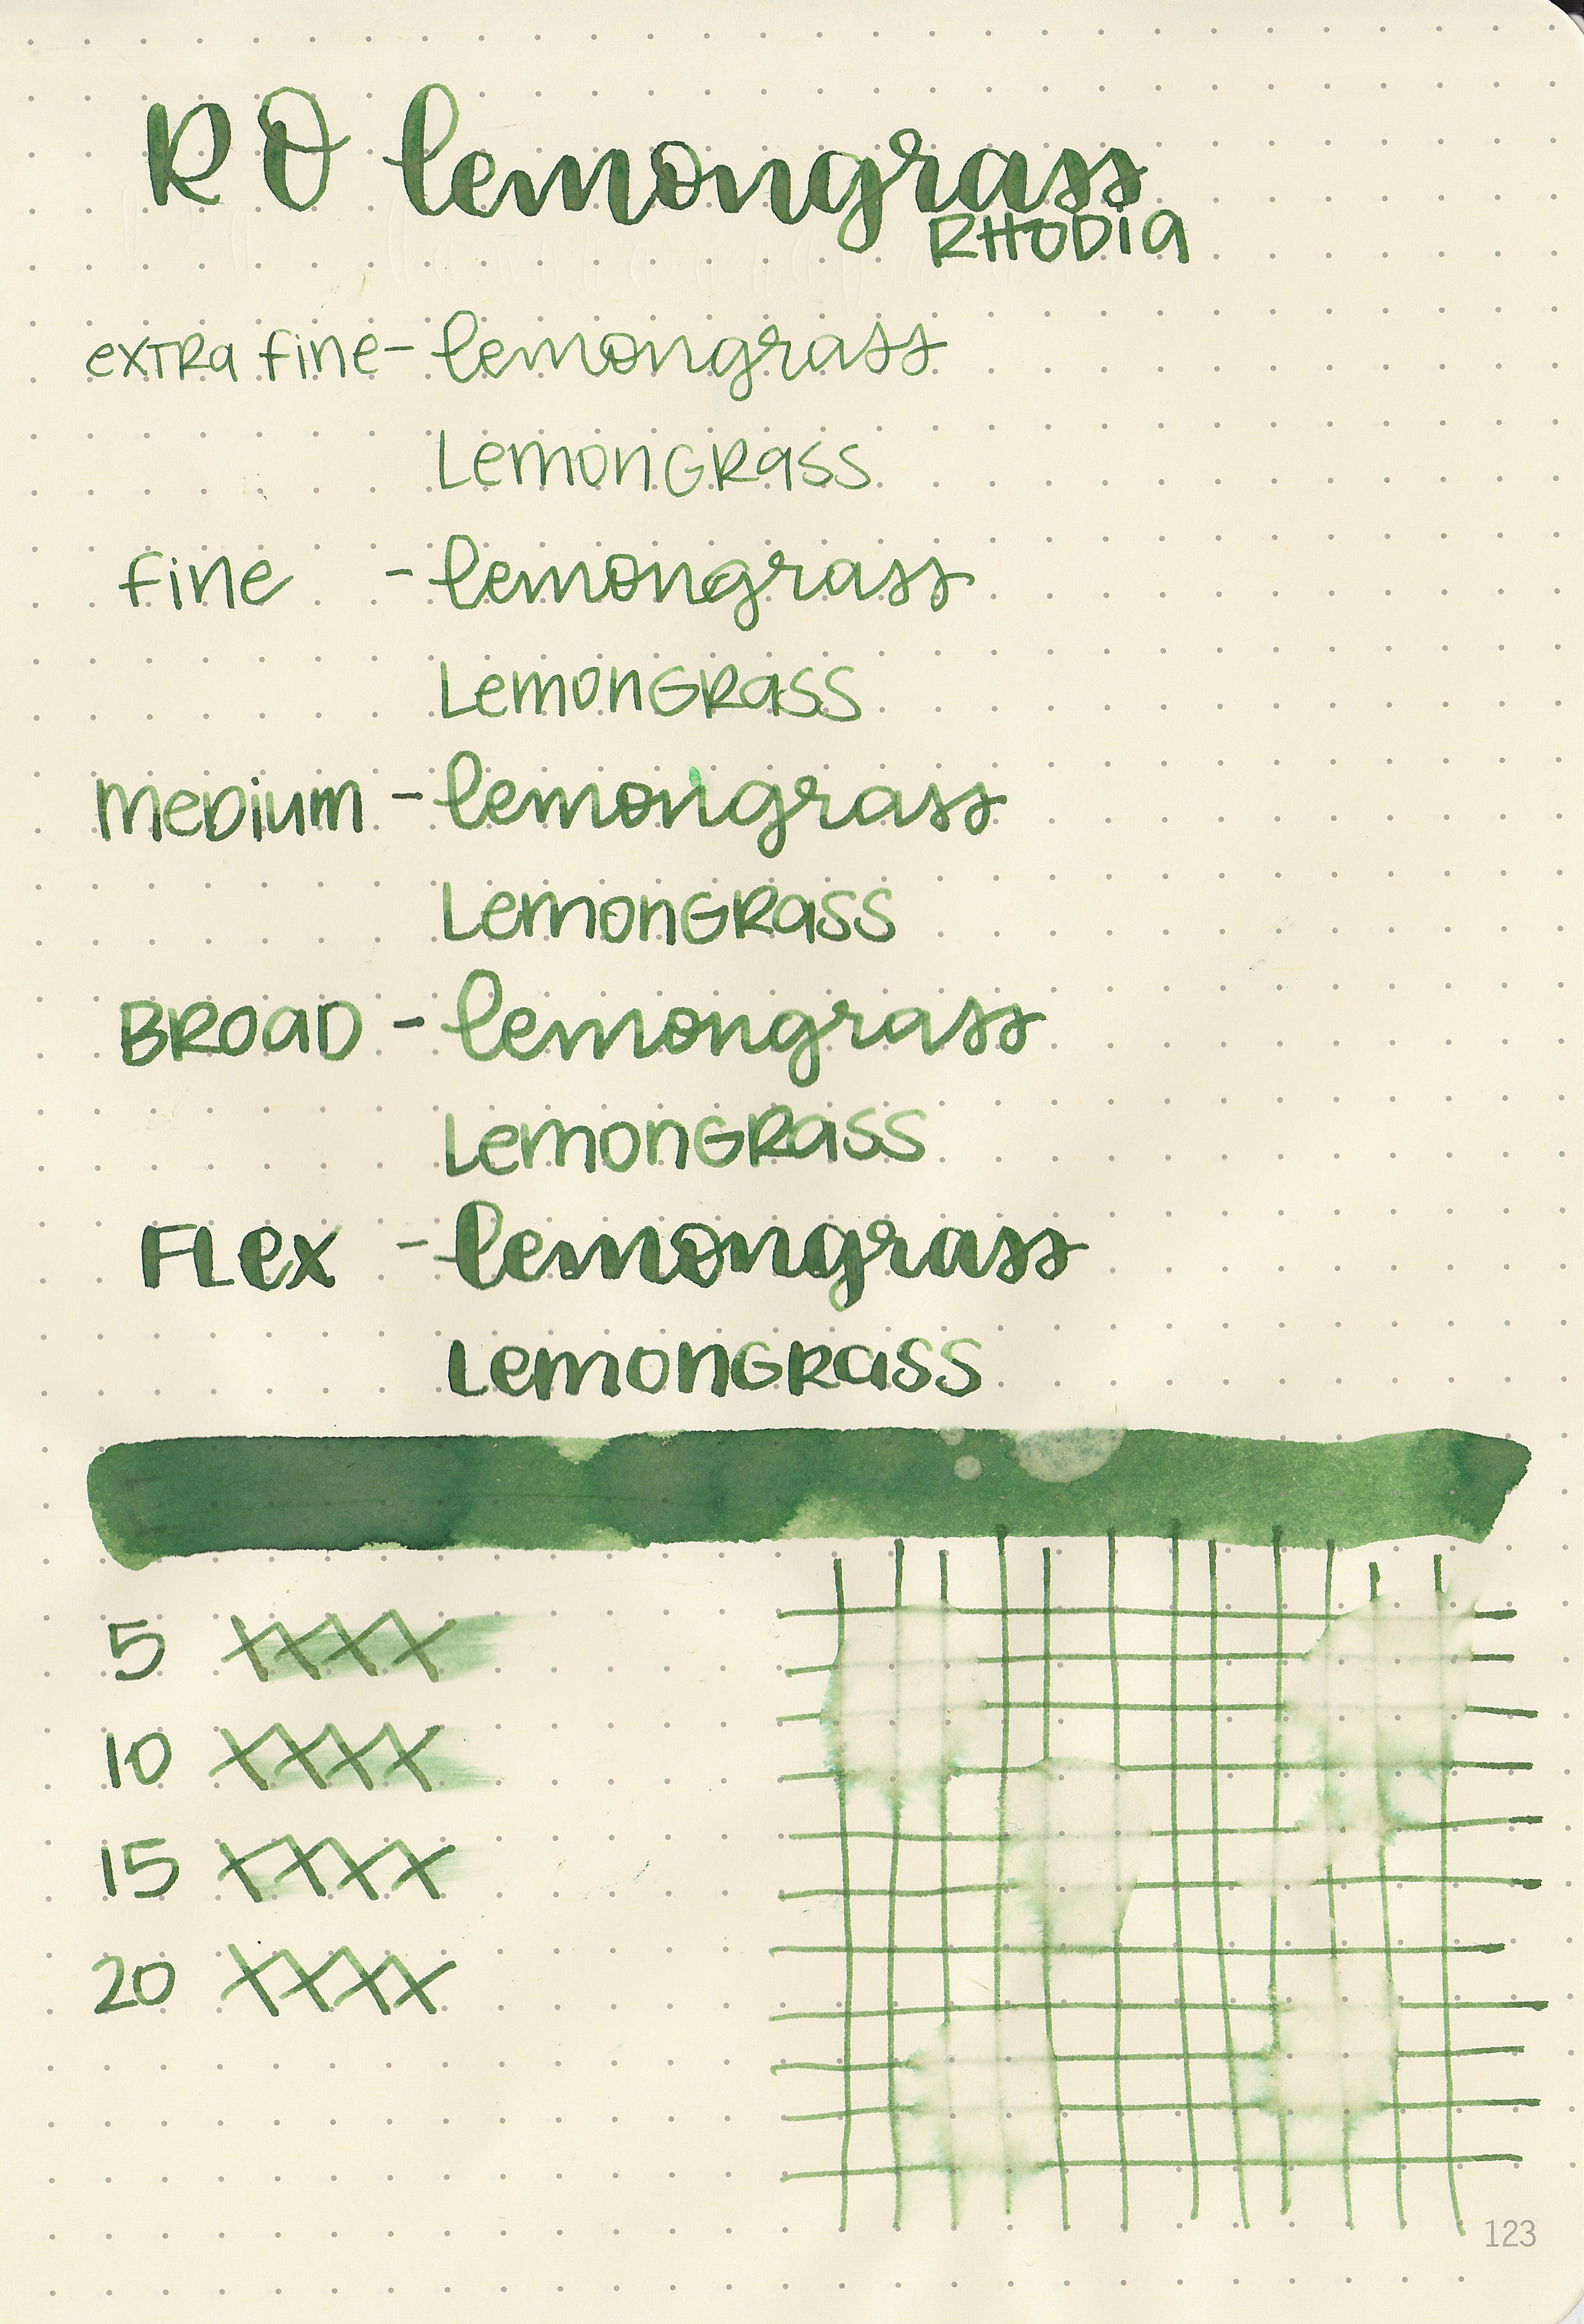 RO lemongrass
RHODIA
extra fine - lemongrass
LemonGRass
fine - lemongrass
LemonGRass
medium - lemongrass
LemonGRass
BROAD - lemongrass
LemonGRass
FLex - lemongrass
LemonGRass
5 XXXX
10 XXXX
15 XXXX
20 XXXX
123